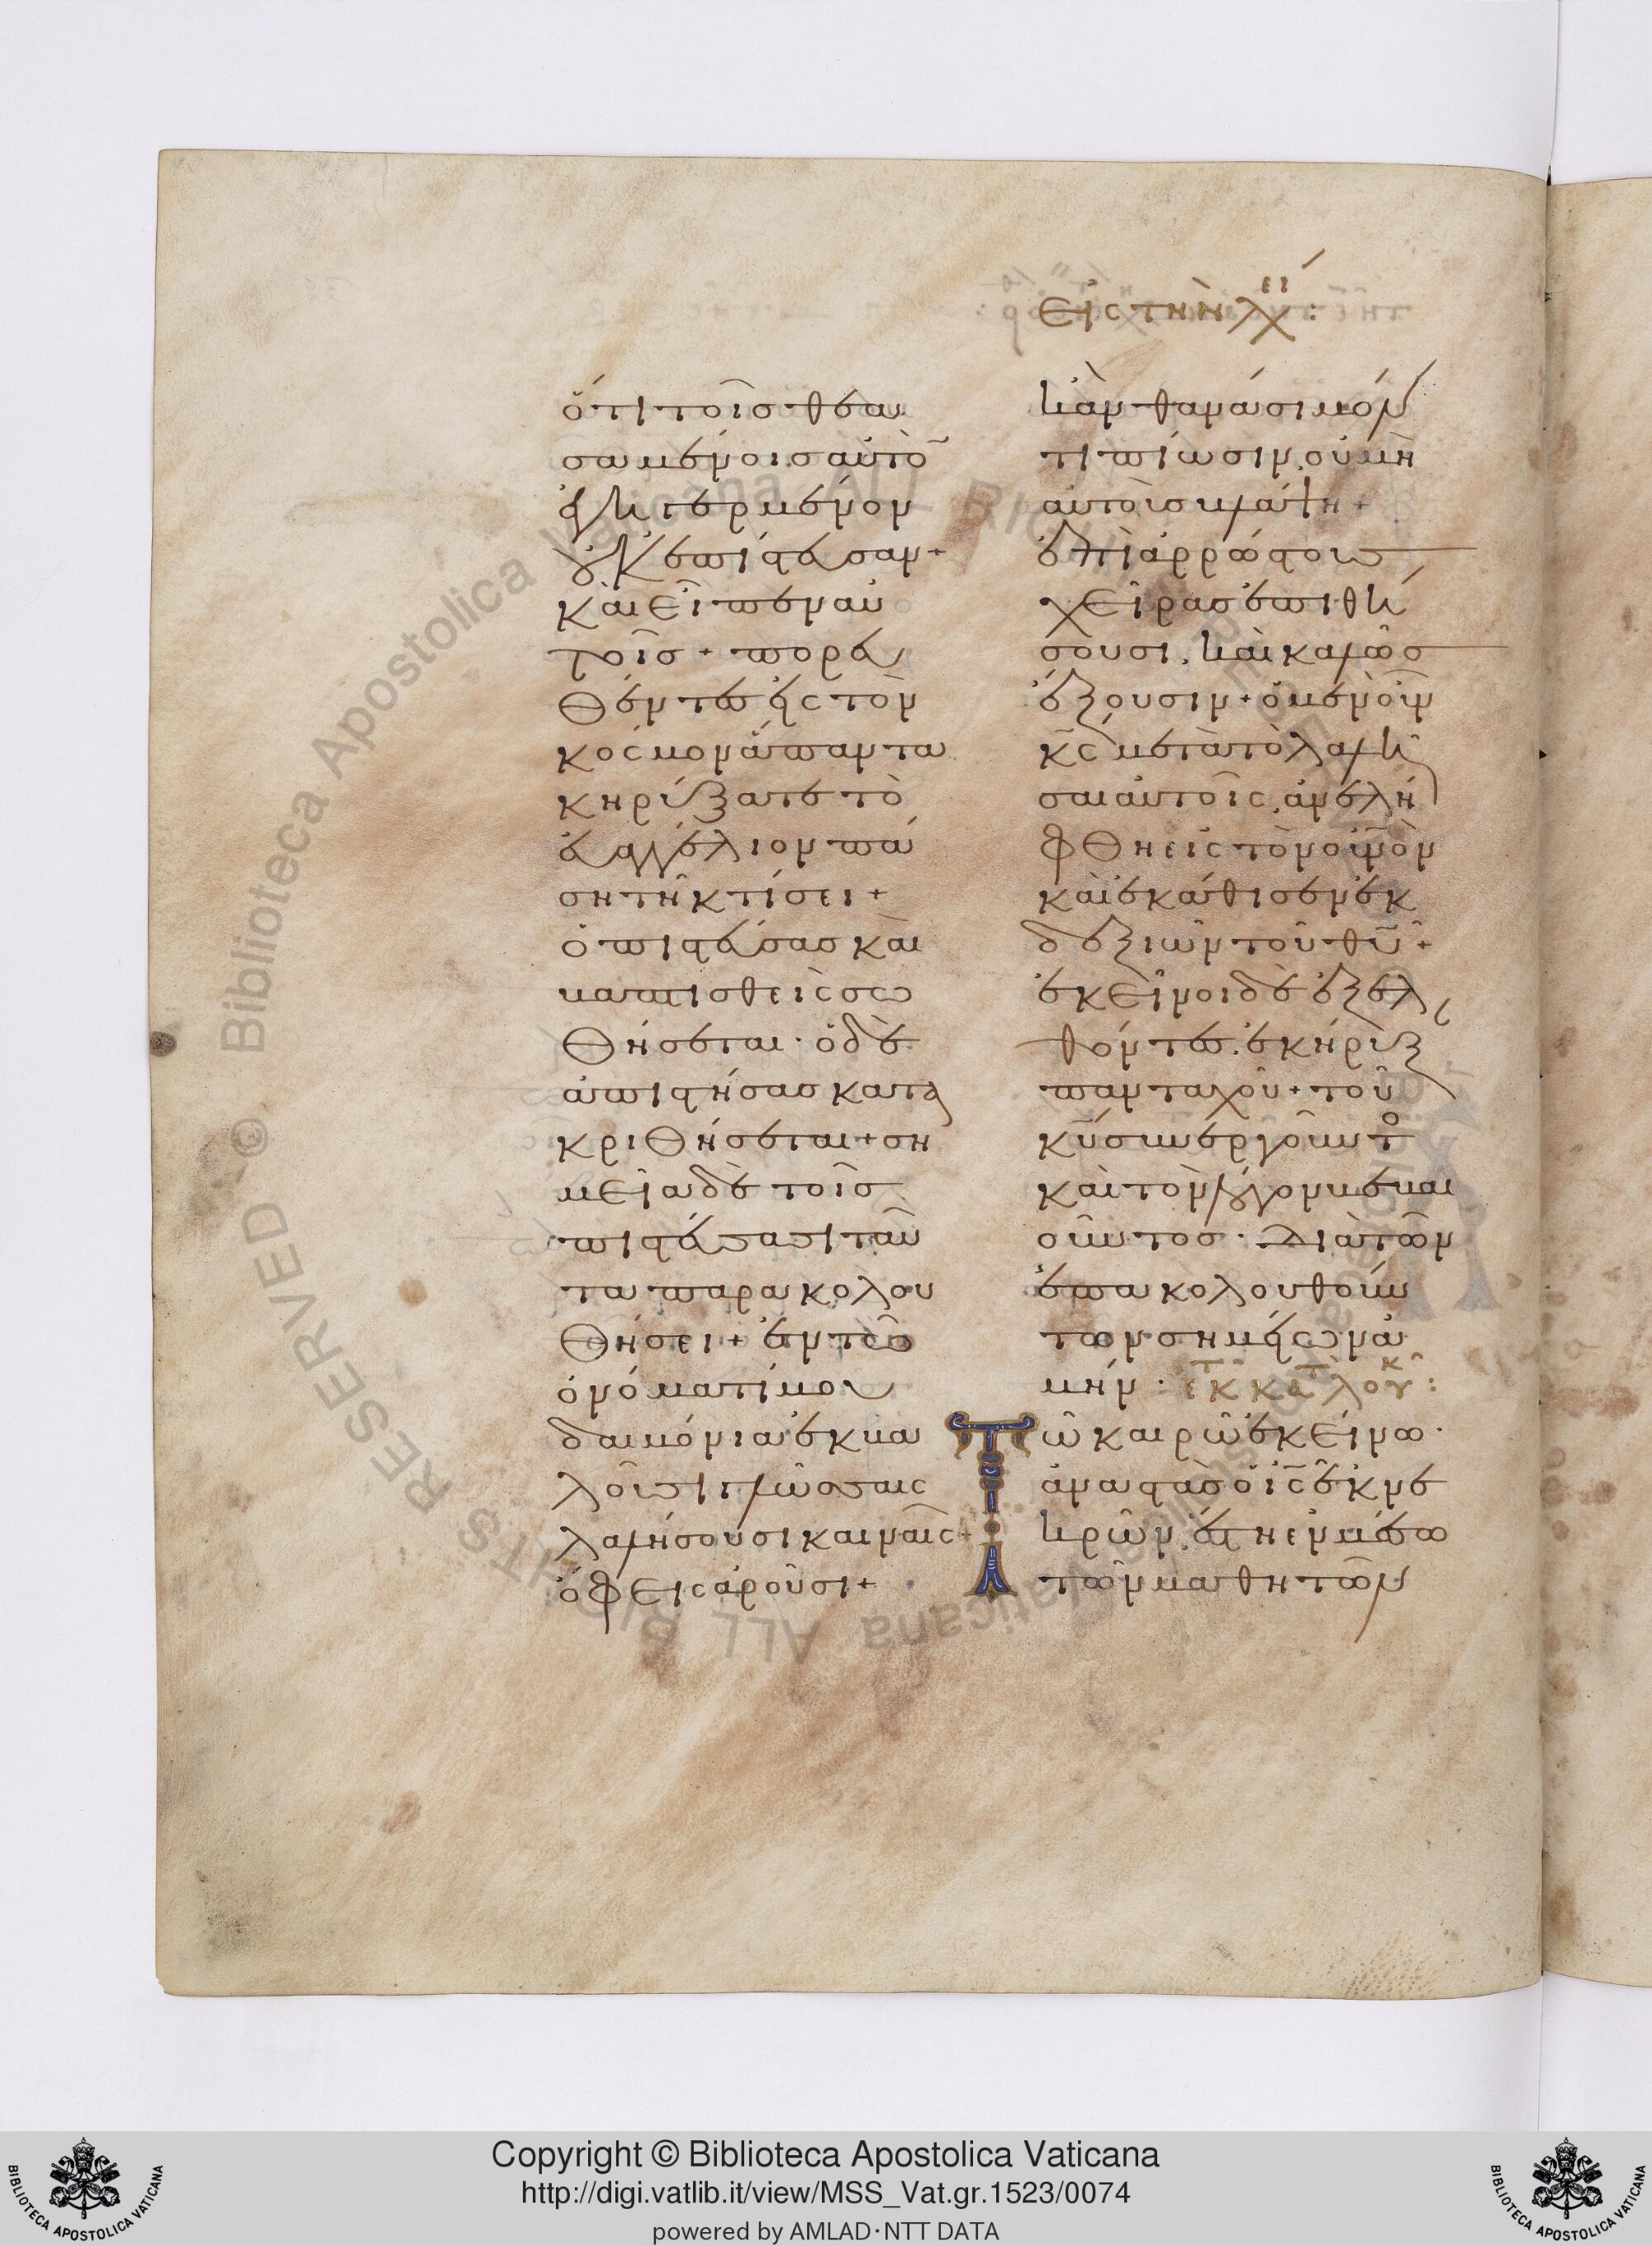 εἰς τὴν λχ ει :
ὅτι τοῖσ θεα
σαμένοισ αὐτὸ
ἐγηγερμένον
οὐκ ἐπίστευσαν+
καὶ εἶπεν αὐ
τοῖσ + πορευ
θέντες εἰς τὸν
κόσμον ἅπαντα
κηρύξατε τὸ
εὐαγγέλιον πά
ση τῆ κτίσει+
ὁ πιστεύσασ καὶ
βαπτισθεὶς σω
θήσεται· ὁ δὲ
ἀπιστήσασ κατα
κριθήσεται+ ση
μεῖα δὲ τοῖσ
πιστεύσασι ταῦ
τα παρακολου
θήσει+ ἐν τῶ
ὀνόματί μου
δαιμόνια ἐκβα
λοῦσι γλώσσαις
λαλήσουσι καιναῖς+
ὄφεις ἀροῦσι+
κἂν θανάσιμόν
τι πίωσιν. οὐ μὴ
αὐτοὺσ βλάψη+
ἐπὶ ἀρρώστουσ
χεῖρασ ἐπιθή
σουσι. καὶ καλῶσ
ἕξουσιν+ ὁ μὲν οὖν
κς μετὰ τὸ λαλῆ
σαι αὐτοῖς. ἀνελή
φθη εἰς τὸν οὐνὸν
καὶ ἐκάθισεν ἐκ
δεξιῶν τοῦ θυ+
ἐκεῖνοι δὲ ἐξελ
θόντες. ἐκήρυξ
πανταχοῦ+ τοῦ
κυ συνεργοῦντο
καὶ τὸν λόγον βεβαι
οῦντοσ· διὰ τῶν
ἐπακολουθούν
των σημείων ἀ
μήν· ἐκ κατ λουκ :
Τῶ καιρῶ ἐκείνω·
ἀναστὰσ ὁ ις ἐκ νε
κρῶν. ἔστη ἐν μέσω
τῶν μαθητῶν
Copyright © Biblioteca Apostolica Vaticana
http://digi.vatlib.it/view/MSS_Vat.gr.1523/0074
powered by AMLAD·NTT DATA
BIBLIOTECA APOSTOLICA VATICANA
BIBLIOTECA APOSTOLICA VATICANA